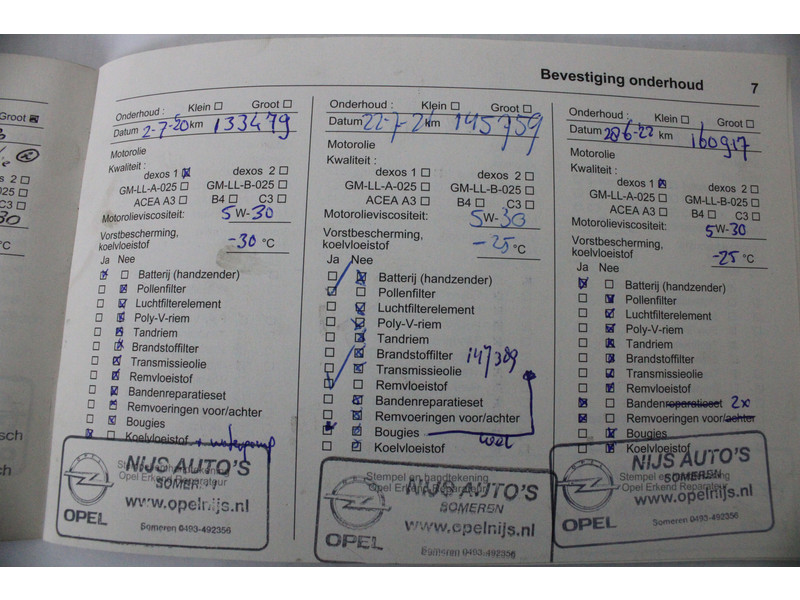 Bevestiging onderhoud 7
Groot
Onderhoud : Klein Groot
Datum 2-7-20 km 133479
Motorolie
Kwaliteit : dexos 1 dexos 2
GM-LL-A-025 GM-LL-B-025
ACEA A3 B4 C3
Motorolieviscositeit: 5W-30
Vorstbescherming,
koelvloeistof -30 °C
Ja Nee
Batterij (handzender)
Pollenfilter
Luchtfilterelement
Poly-V-riem
Tandriem
Brandstoffilter
Transmissieolie
Remvloeistof
Bandenreparatieset
Remvoeringen voor/achter
Bougies
Koelvloeistof + waterpomp
Stempel en handtekening
Opel Erkend Reparateur
NIJS AUTO'S
SOMEREN
www.opelnijs.nl
OPEL
Someren 0493-492356
Onderhoud : Klein Groot
Datum 22-7-21 km 145759
Motorolie
Kwaliteit : dexos 1 dexos 2
GM-LL-A-025 GM-LL-B-025
ACEA A3 B4 C3
Motorolieviscositeit: 5W-30
Vorstbescherming,
koelvloeistof -25 °C
Ja Nee
Batterij (handzender)
Pollenfilter
Luchtfilterelement
Poly-V-riem
Tandriem
Brandstoffilter 147389
Transmissieolie
Remvloeistof
Bandenreparatieset
Remvoeringen voor/achter
Bougies
Koelvloeistof
Stempel en handtekening
Opel Erkend Reparateur
NIJS AUTO'S
SOMEREN
www.opelnijs.nl
OPEL
Someren 0493-492356
Onderhoud : Klein Groot
Datum km 160917
Motorolie
Kwaliteit :
dexos 1 dexos 2
GM-LL-A-025 GM-LL-B-025
ACEA A3 B4 C3
Motorolieviscositeit:
5W-30
Vorstbescherming,
koelvloeistof -25 °C
Ja Nee
Batterij (handzender)
Pollenfilter
Luchtfilterelement
Poly-V-riem
Tandriem
Brandstoffilter
Transmissieolie
Remvloeistof
Bandenreparatieset 2x
Remvoeringen voor/achter
Bougies
Koelvloeistof
Stempel en handtekening
Opel Erkend Reparateur
NIJS AUTO'S
SOMEREN
www.opelnijs.nl
OPEL
Someren 0493-492356